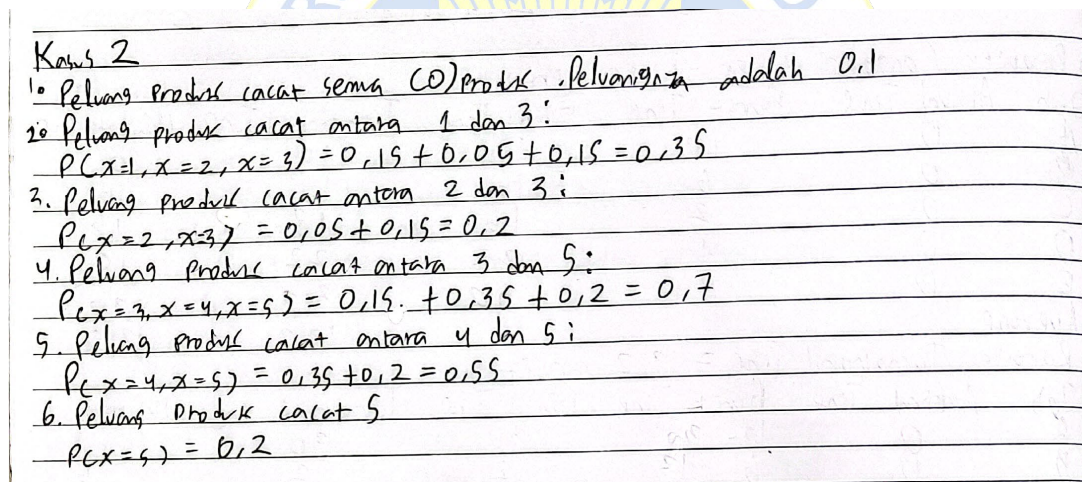 Kasus 2
1. Peluang Produk cacat semua (0) Produk. Peluangnya adalah 0.1
2. Peluang produk cacat antara 1 dan 3:
P(x=1, x=2, x=3) = 0,15 + 0,05 + 0,15 = 0,35
3. Peluang produk cacat antara 2 dan 3:
P(x=2, x=3) = 0,05 + 0,15 = 0,2
4. Peluang Produk cacat antara 3 dan 5:
P(x=3, x=4, x=5) = 0,15. + 0,35 + 0,2 = 0,7
5. Peluang produk cacat antara 4 dan 5:
P(x=4, x=5) = 0,35 + 0,2 = 0,55
6. Peluang Produk cacat 5
P(x=5) = 0,2